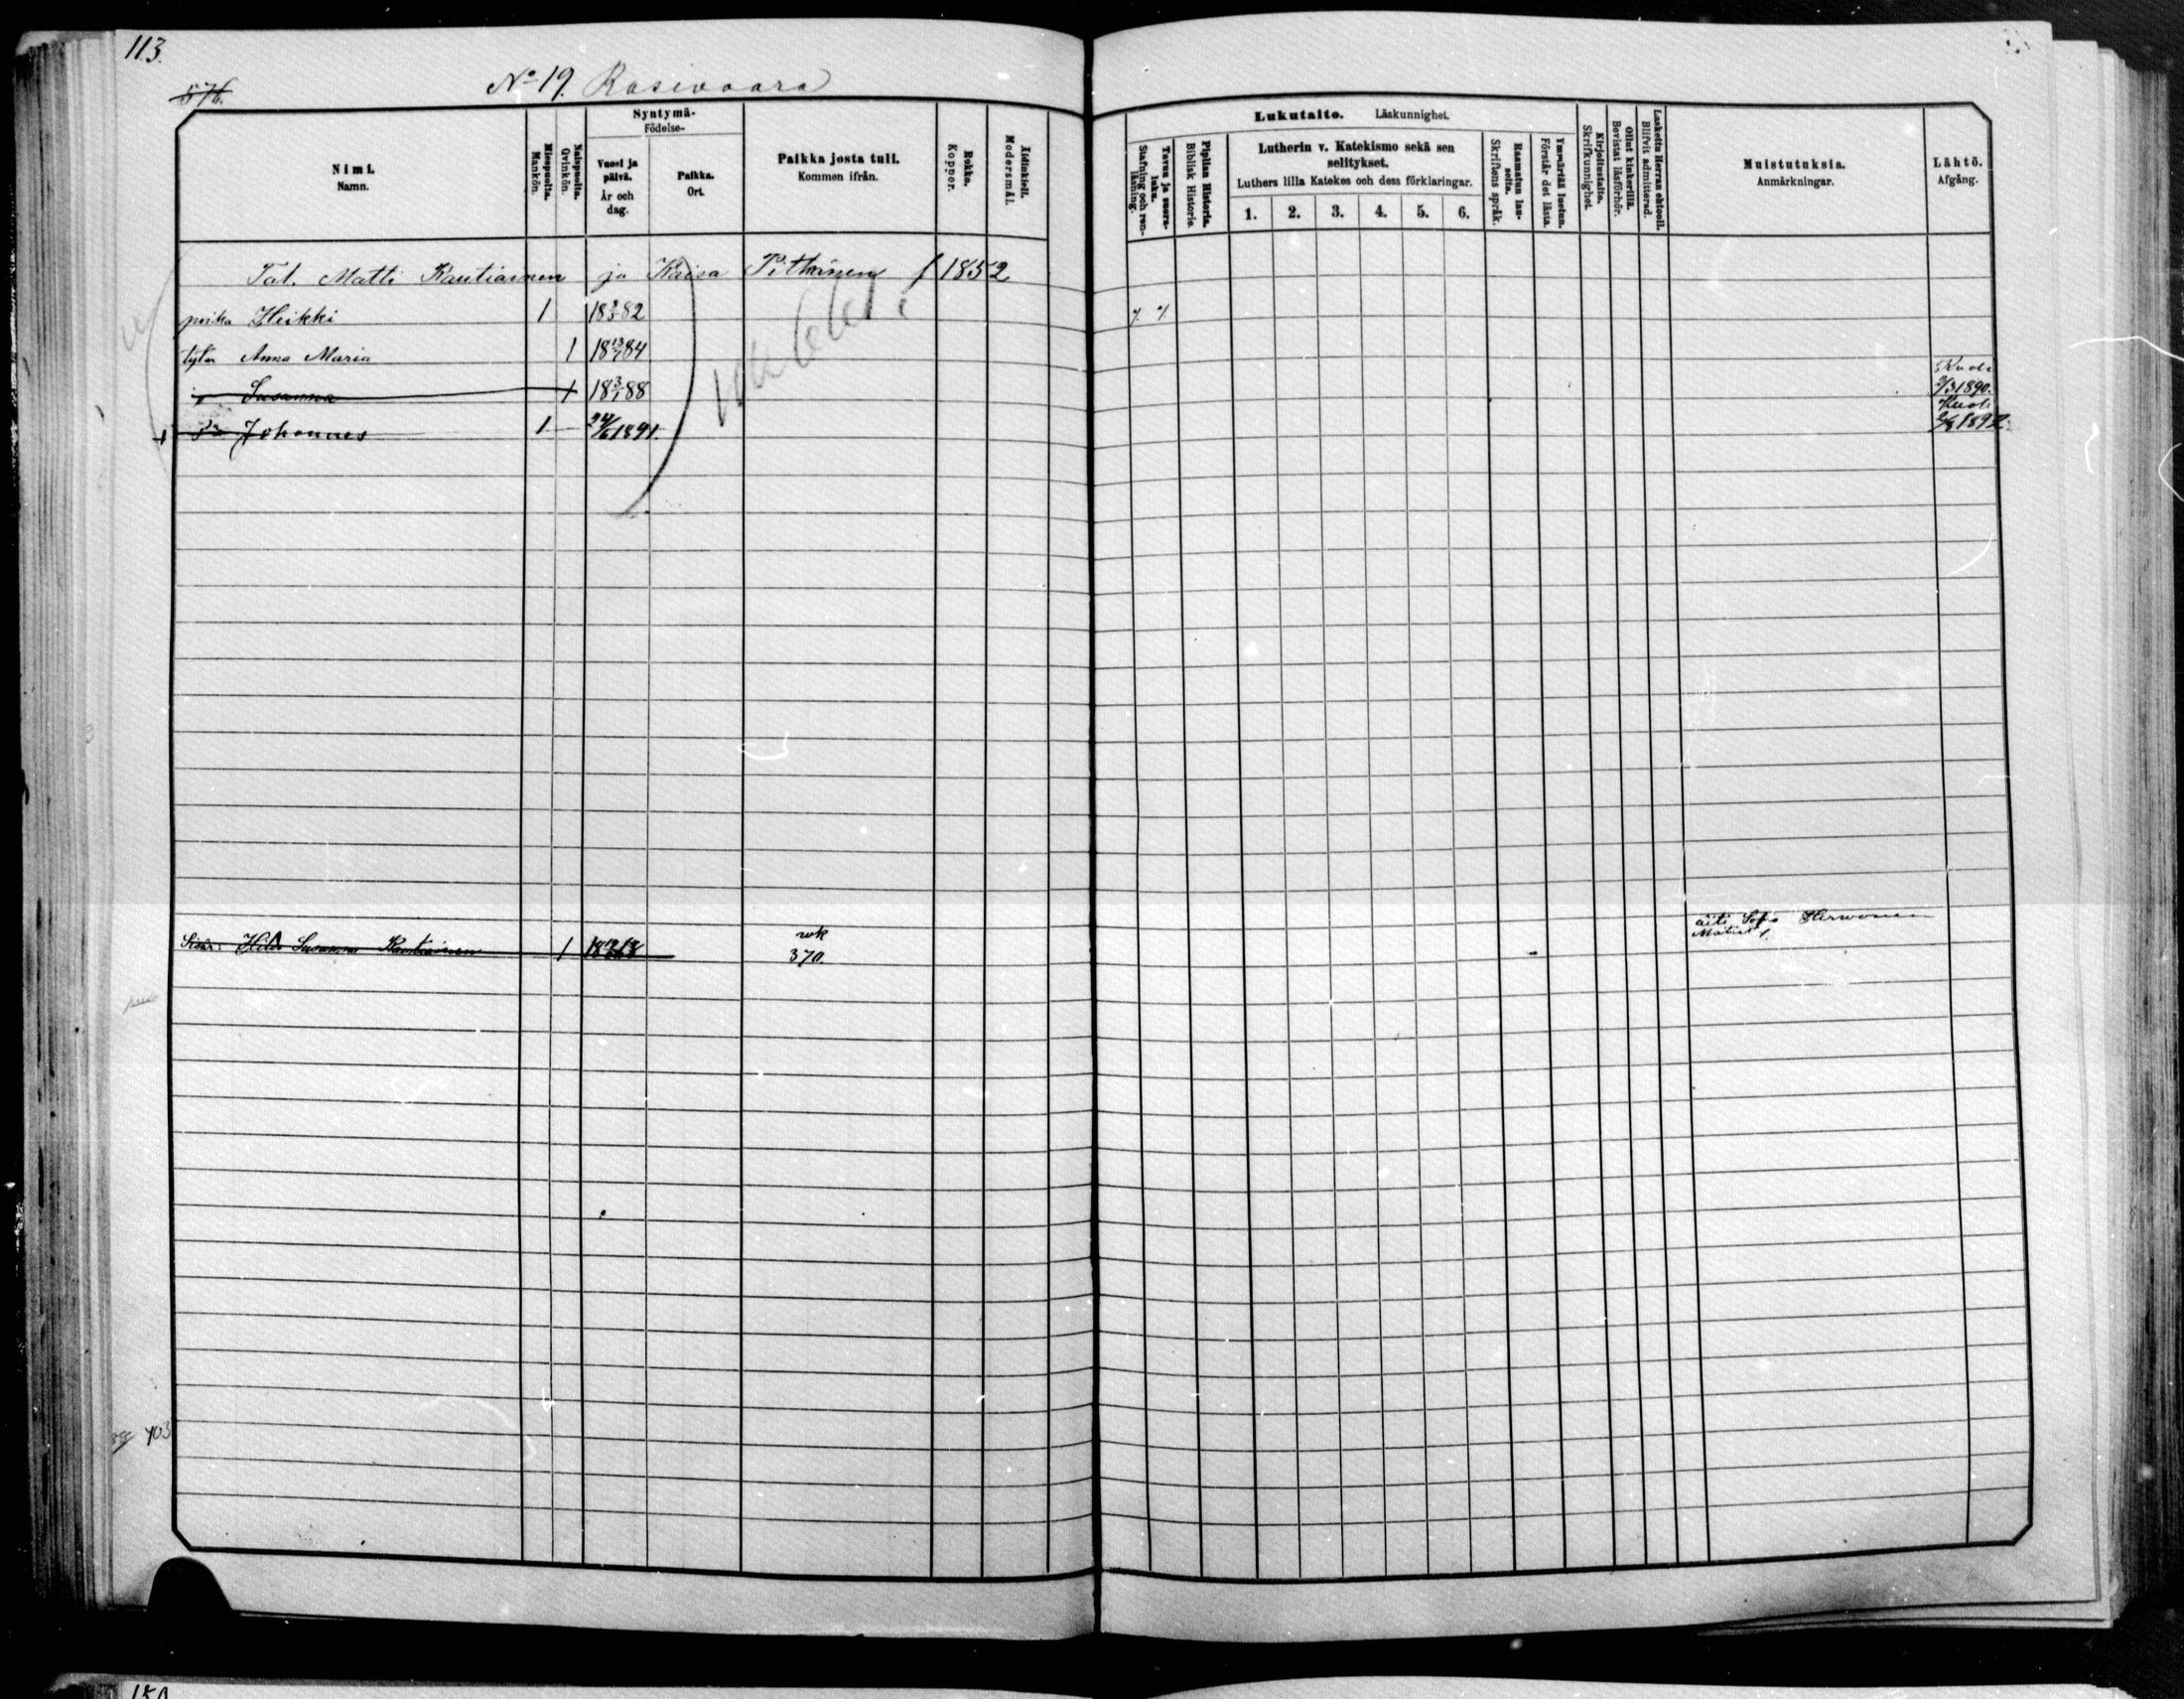 113.
576.
No 19. Rasivaara
Nimi.
Namn.
Miespuolta.
Mankön.
Naispuolta.
Qvinkön.
Syntymä-
Födelse-
Vuosi ja päivä.
År och dag.
Paikka.
Ort.
Paikka josta tuli.
Kommen ifrån.
Rokko.
Koppor.
Äidinkieli.
Modersmål.
Lukutaito. Läskunnighet.
Tavuu ja suora-luku.
Stafning och ren-läsning.
Piplian Historia.
Biblisk Historie.
Lutherin v. Katekismo sekä sen
selitykset.
Luthers lilla Katekes och dess förklaringar.
1. 2. 3. 4. 5. 6.
Raamatun lau-seita.
Skriftens språk.
Ymmärtää luetun.
Förstår det lästa.
Kirjoitustaito.
Skrifkunnighet.
Ollut kinkerillä.
Bevistat läsförhör.
Laskettu Herran ehtooll.
Blifvit admitterad.
Muistutuksia.
Anmärkningar.
Lähtö.
Afgång.
Tal. Matti Rautiainen ja Kaisa Pitkänen f 1852
poika Heikki 1 1882
tytär Anna Maria 1 18 13/7 84
Susanna 1 18 3/1 88 Kuoli 1890.
Johannes 1 24/6 1891. Kuoli 1892.
Sisar: Hilda Susanna Rautiainen 1 rok 370.
äiti Sofia Hirvonen
703
150